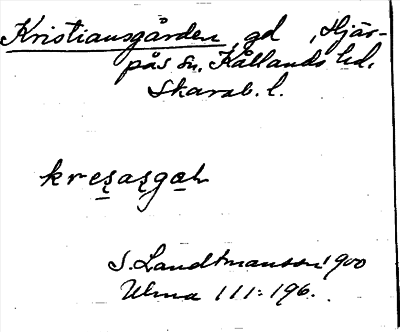 Kristiansgården, gd, Hjäs-
pås sn. Kållands hd.
Skarab. l.
S. Landtmanson 1900
Ulma 111:196.